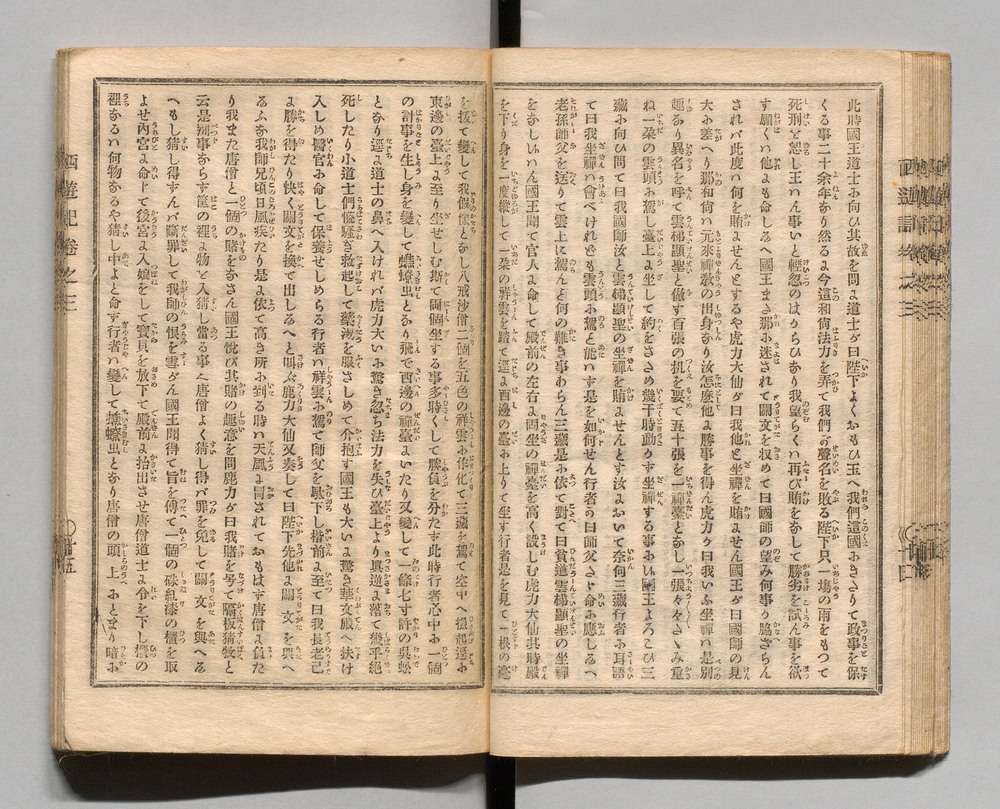 此時國王道士にむかひ其故を問よ道士らが曰陛下よくおもひ玉へ我們這國におきさりて政事を保
くる事二十余年なり然るよ今這和尚法力を弄て我們が聲名を敗る陛下只一塲の雨をもつて
死刑を恕し王はん事いと輕忽のはからひなり我望らくハ再び賭をなして勝劣を試ん事を欲
す願くハ他よも命し玉へ國王まさ那に迷されて關文を収めて曰國師の望み何事か脇ざらん
されバ此度ハ何を賭ませんとするや虎力大仙が曰我他と坐禪を賭ません國王が曰國師の見
大に差へり那和尚ハ元來禪教の出身なり汝怎麼他よ勝事を得ん虎力が曰我いふ坐禪ハ是別
趣なり異名を呼て雲梯顯聖と做す百張の机を要て五十張を一禪臺となし一張々々をさゝみ重
ね一朶の雲頭に駕し臺上よ坐して約をさゞめ幾千時動かす坐禪する事なり國王よろこひ三
藏に向ひ問て曰我國師汝と雲梯顯聖の坐禪を賭ませんとす汝よおいて奈何三藏行者に耳語
て曰我坐禪ハ會べけれども雲頭に駕と能ハす是を如何せん行者の曰師父さゞ命に應し玉へ
老孫師父を送りて雲上に縦んと何の難き事あらん三藏是に依て對て曰貧道雲梯顯聖の坐禪
をなししハん國王聞て官人よ命して殿前の左右よ両坐の禪臺を高く設しむ虎力大仙其時殿
を下り身を一塵縱して一朶の祥雲を踏て逕よ西邊の臺に上りて坐す行者是を見て一根の毫
を抜て變して我假像となし八戒沙僧二個を五色の祥雲に作化て三藏を駕て空中へ攝起逕に
東邊の臺上よ至り坐せしむ斯て両個坐する事多時くして勝負を分たす此時行者心中に一個
の計事を生し身を變して蟭蟟虫となり飛て西邊の禪臺よいたり又變して一條七寸許の呉蚣
となり逕よ道士の鼻へ入けれバ虎力大いに驚き忽ち法力を失ひ臺上より眞逆よ落て幾乎絶
死したり小道士們慌騒き救起して藥湯を服さしめて介抱す國王も大いよ驚き華文殿へ扶け
入しめ醫官に命して保養せしめらる行者ハ祥雲に駕て師父を臺下し楷前よ至て曰我長老已
よ勝を得たり快く關文を換て出し玉へと叫ぶ鹿力大仙又奏して曰陛下先他よ關文を與へ
るふな我師兄頃日風疾たり是よ依て高き所に到る時ハ天風よ冒されておもはす唐僧よ負た
り我また唐僧と一個の賭をなさん國王悦び其賭の趣意を問鹿力が曰我賭を号て隔板猜牧と
云是別事ならす筐の裡よ物を入猜し當る事之唐僧よく猜し得バ罪を免して關文を與へる
へもし猜し得すんバ斷罪して我師の恨を雪がん國王聞得て旨を傳て一個の硃紅漆の櫃を取
よせ内宮よ命下て後宮よ入娘をして寶貝を放下て殿前よ抬出させ唐僧道士よ令を下し櫃の
裡なるハ何物なるや猜し中よと命す行者ハ變して蟭蟟虫となり唐僧の頭上にとまり暗に
西遊記卷之三
〇十五